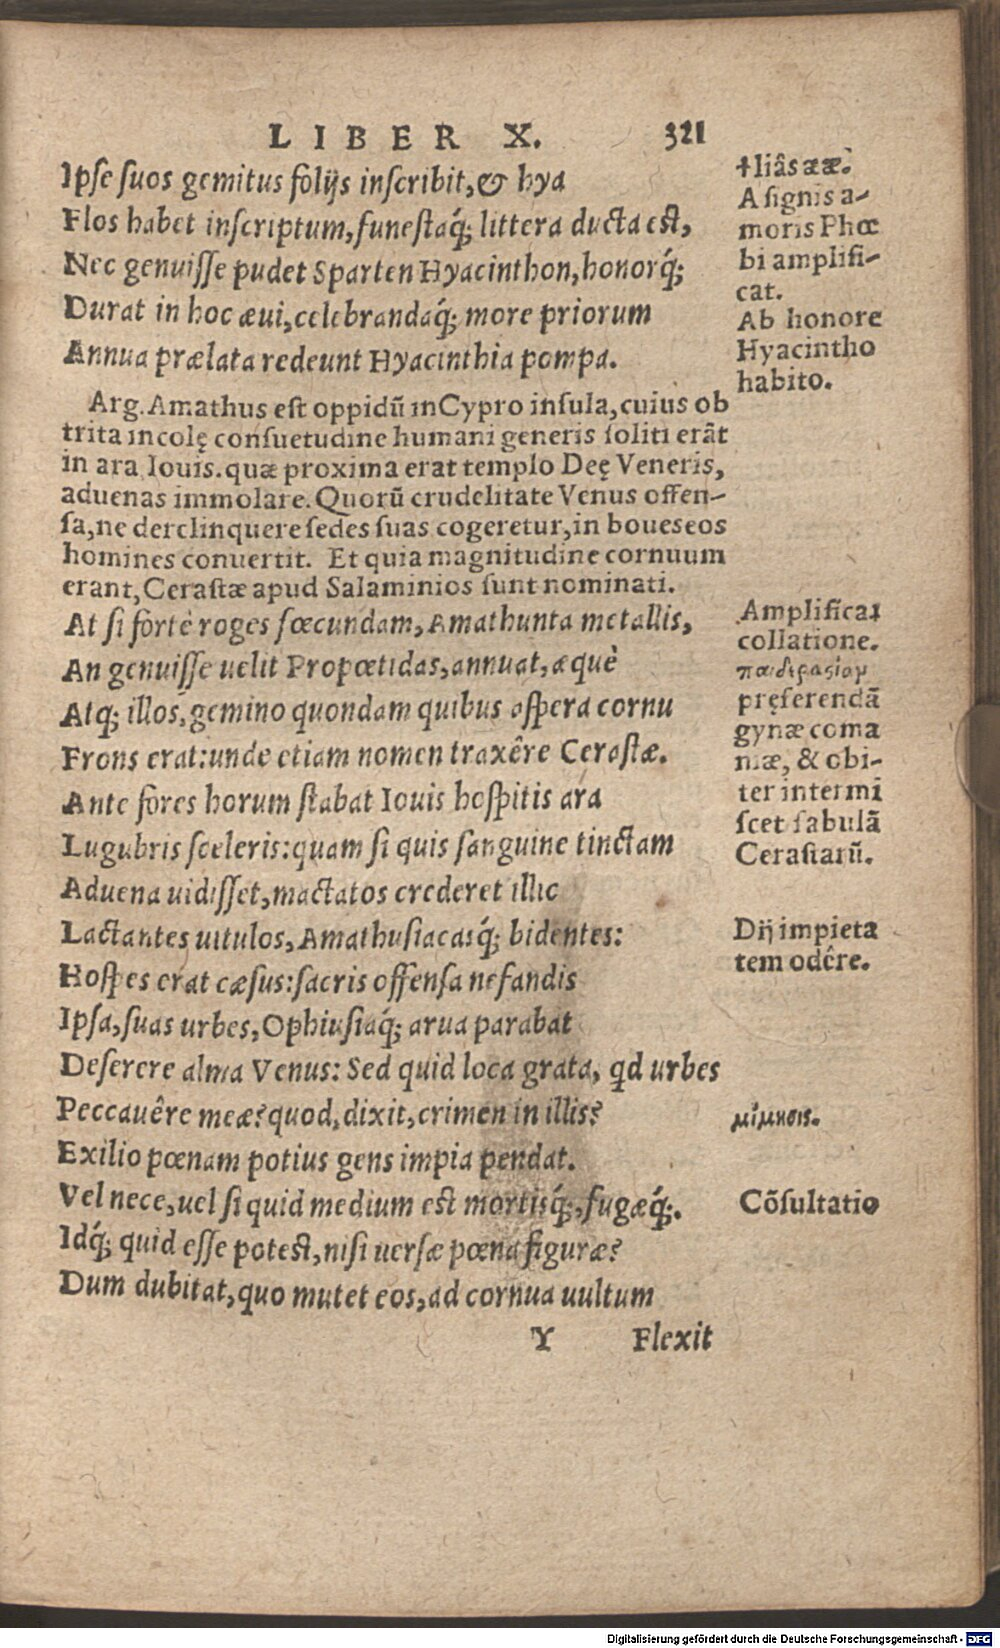 LIBER X. 321
Ipse suos gemitus folijs inscribit, & hya
Flos habet inscriptum, funestaq́; littera ducta est,
Nec genuisse pudet Sparten Hyacinthon, honorq́;
Durat in hoc æui, celebrandaq́; more priorum
Annua prælata redeunt Hyacinthia pompa.
†liâs ææ.
A signis a-
moris Phœ
bi amplifi-
cat.
Ab honore
Hyacintho
habito.
Arg. Amathus est oppidū in Cypro insula, cuius ob
trita incolę consuetudine humani generis soliti erāt
in ara Iouis. quæ proxima erat templo Deę Veneris,
aduenas immolare. Quorū crudelitate Venus offen-
sa, ne derelinquere sedes suas cogeretur, in boues eos
homines conuertit. Et quia magnitudine cornuum
erant, Cerastæ apud Salaminios sunt nominati.
At si fortè roges fœcundam, Amathunta metallis,
An genuisse uelit Propœtidas, annuat, æquè
Atq; illos, gemino quondam quibus aspera cornu
Frons erat: unde etiam nomen traxêre Cerastæ.
Ante fores horum stabat Iouis hospitis ara
Lugubris sceleris: quam si quis sanguine tinctam
Aduena uidisset, mactatos crederet illic
Lactantes uitulos, Amathusiacasq́; bidentes:
Hospes erat cæsus: sacris offensa nefandis
Ipsa, suas urbes, Ophiusiaq́; arua parabat
Deserere alma Venus: Sed quid loca grata, qd urbes
Peccauêre meæ? quod, dixit, crimen in illis?
Exilio pœnam potius gens impia pendat.
Vel nece, uel si quid medium est mortisq́;, fugæq́;.
Idq́; quid esse potest, nisi uersæ pœna figuræ?
Dum dubitat, quo mutet eos, ad cornua uultum
Amplificat
collatione.
παιδεραςίαν
pręferendā
gynæcoma
niæ, & obi-
ter intermi
scet fabulā
Cerastarū.
Dij impieta
tem odêre.
μίμησις.
Cōsultatio
Y Flexit
Digitalisierung gefördert durch die Deutsche Forschungsgemeinschaft - DFG